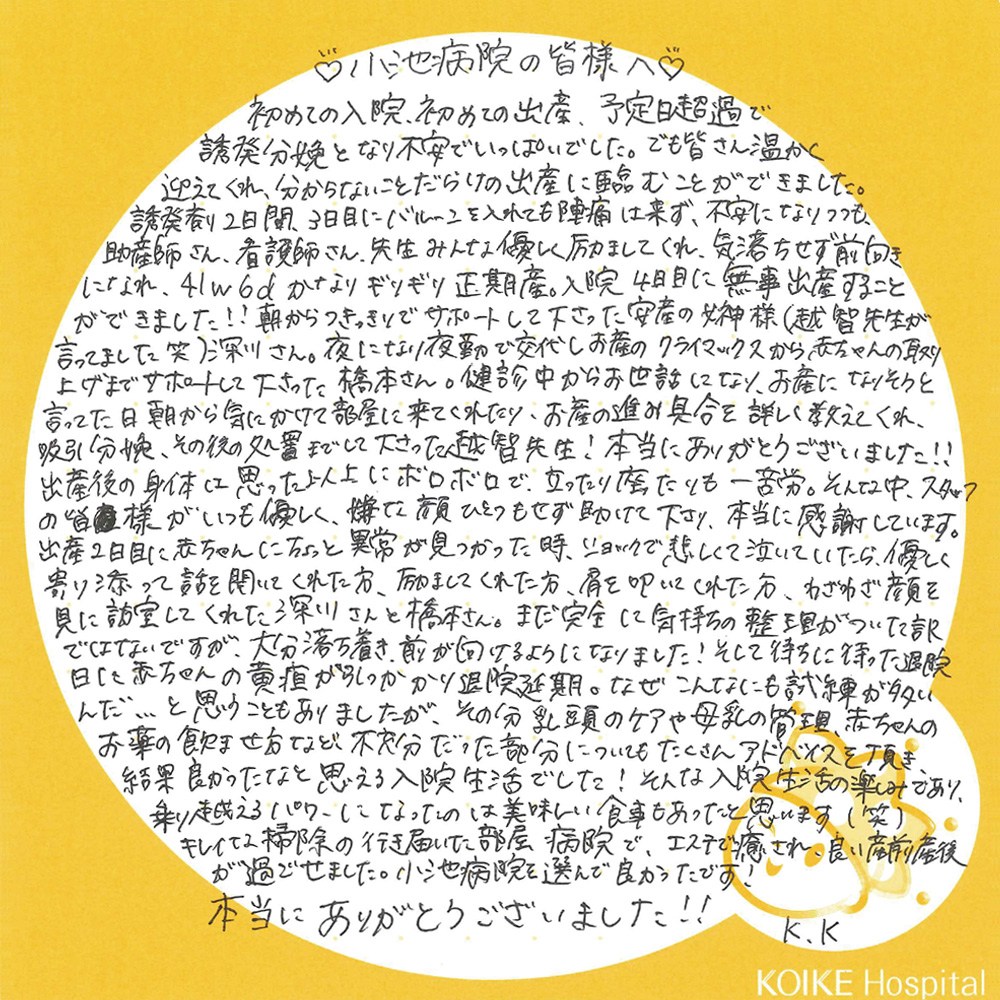 ♡小池病院の皆様へ♡
初めての入院、初めての出産、予定日超過で
誘発分娩となり不安でいっぱいでした。でも皆さん温かく
迎えてくれ、分からないことだらけの出産に臨むことができました。
誘発剤2日間、3日目にバルーンを入れても陣痛は来ず、不安になりつつも、
助産師さん、看護師さん、先生みんな優しく励ましてくれ、気落ちせず前向き
になれ、41w6dかなりギリギリ正期産。入院4日目に無事出産すること
ができました!!朝からつきっきりでサポートして下さった安産の女神様(越智先生が
言ってました笑)深川さん。夜になり夜勤で交代しお産のクライマックスから赤ちゃんの取り
上げまでサポートして下さった橋本さん。健診中からお世話になり、お産になりそうと
言った日朝から気にかけて部屋に来てくれたり、お産の進み具合を詳しく教えてくれ、
吸引分娩、その後の処置までして下さった越智先生!本当にありがとうございました!!
出産後の身体は思った以上にボロボロで、立ったり座ったりも一苦労。そんな中、スタッフ
の皆様がいつも優しく、嫌な顔ひとつもせず助けて下さり、本当に感謝しています。
出産2日目に赤ちゃんにちょっと異常が見つかった時、ショックで悲しくて泣いていたら、優しく
寄り添って話を聞いてくれた方、励ましてくれた方、肩を叩いてくれた方、わざわざ顔を
見に訪室してくれた深川さんと橋本さん。まだ完全に気持ちの整理がついた訳
ではないですが、大分落ち着き、前が向けるようになりました!そして待ちに待った退院
日に赤ちゃんの黄疸がひっかかり退院延期。なぜこんなにも試練が多い
んだ…と思うこともありましたが、その分乳頭のケアや母乳の管理、赤ちゃんの
お薬の飲ませ方など、不充分だった部分についてもたくさんアドバイスを頂き、
結果良かったなと思える入院生活でした!そんな入院生活の楽しみであり、
乗り越えるパワーになったのは美味しい食事もあったと思います(笑)
キレイな掃除の行き届いた部屋、病院で、エステで癒され、良い産前産後
が過ごせました。小池病院を選んで良かったです!
本当にありがとうございました!!
K.K
KOIKE Hospital